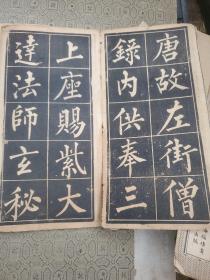 唐故左街僧
錄內供奉三
上座賜紫大
達法師玄秘